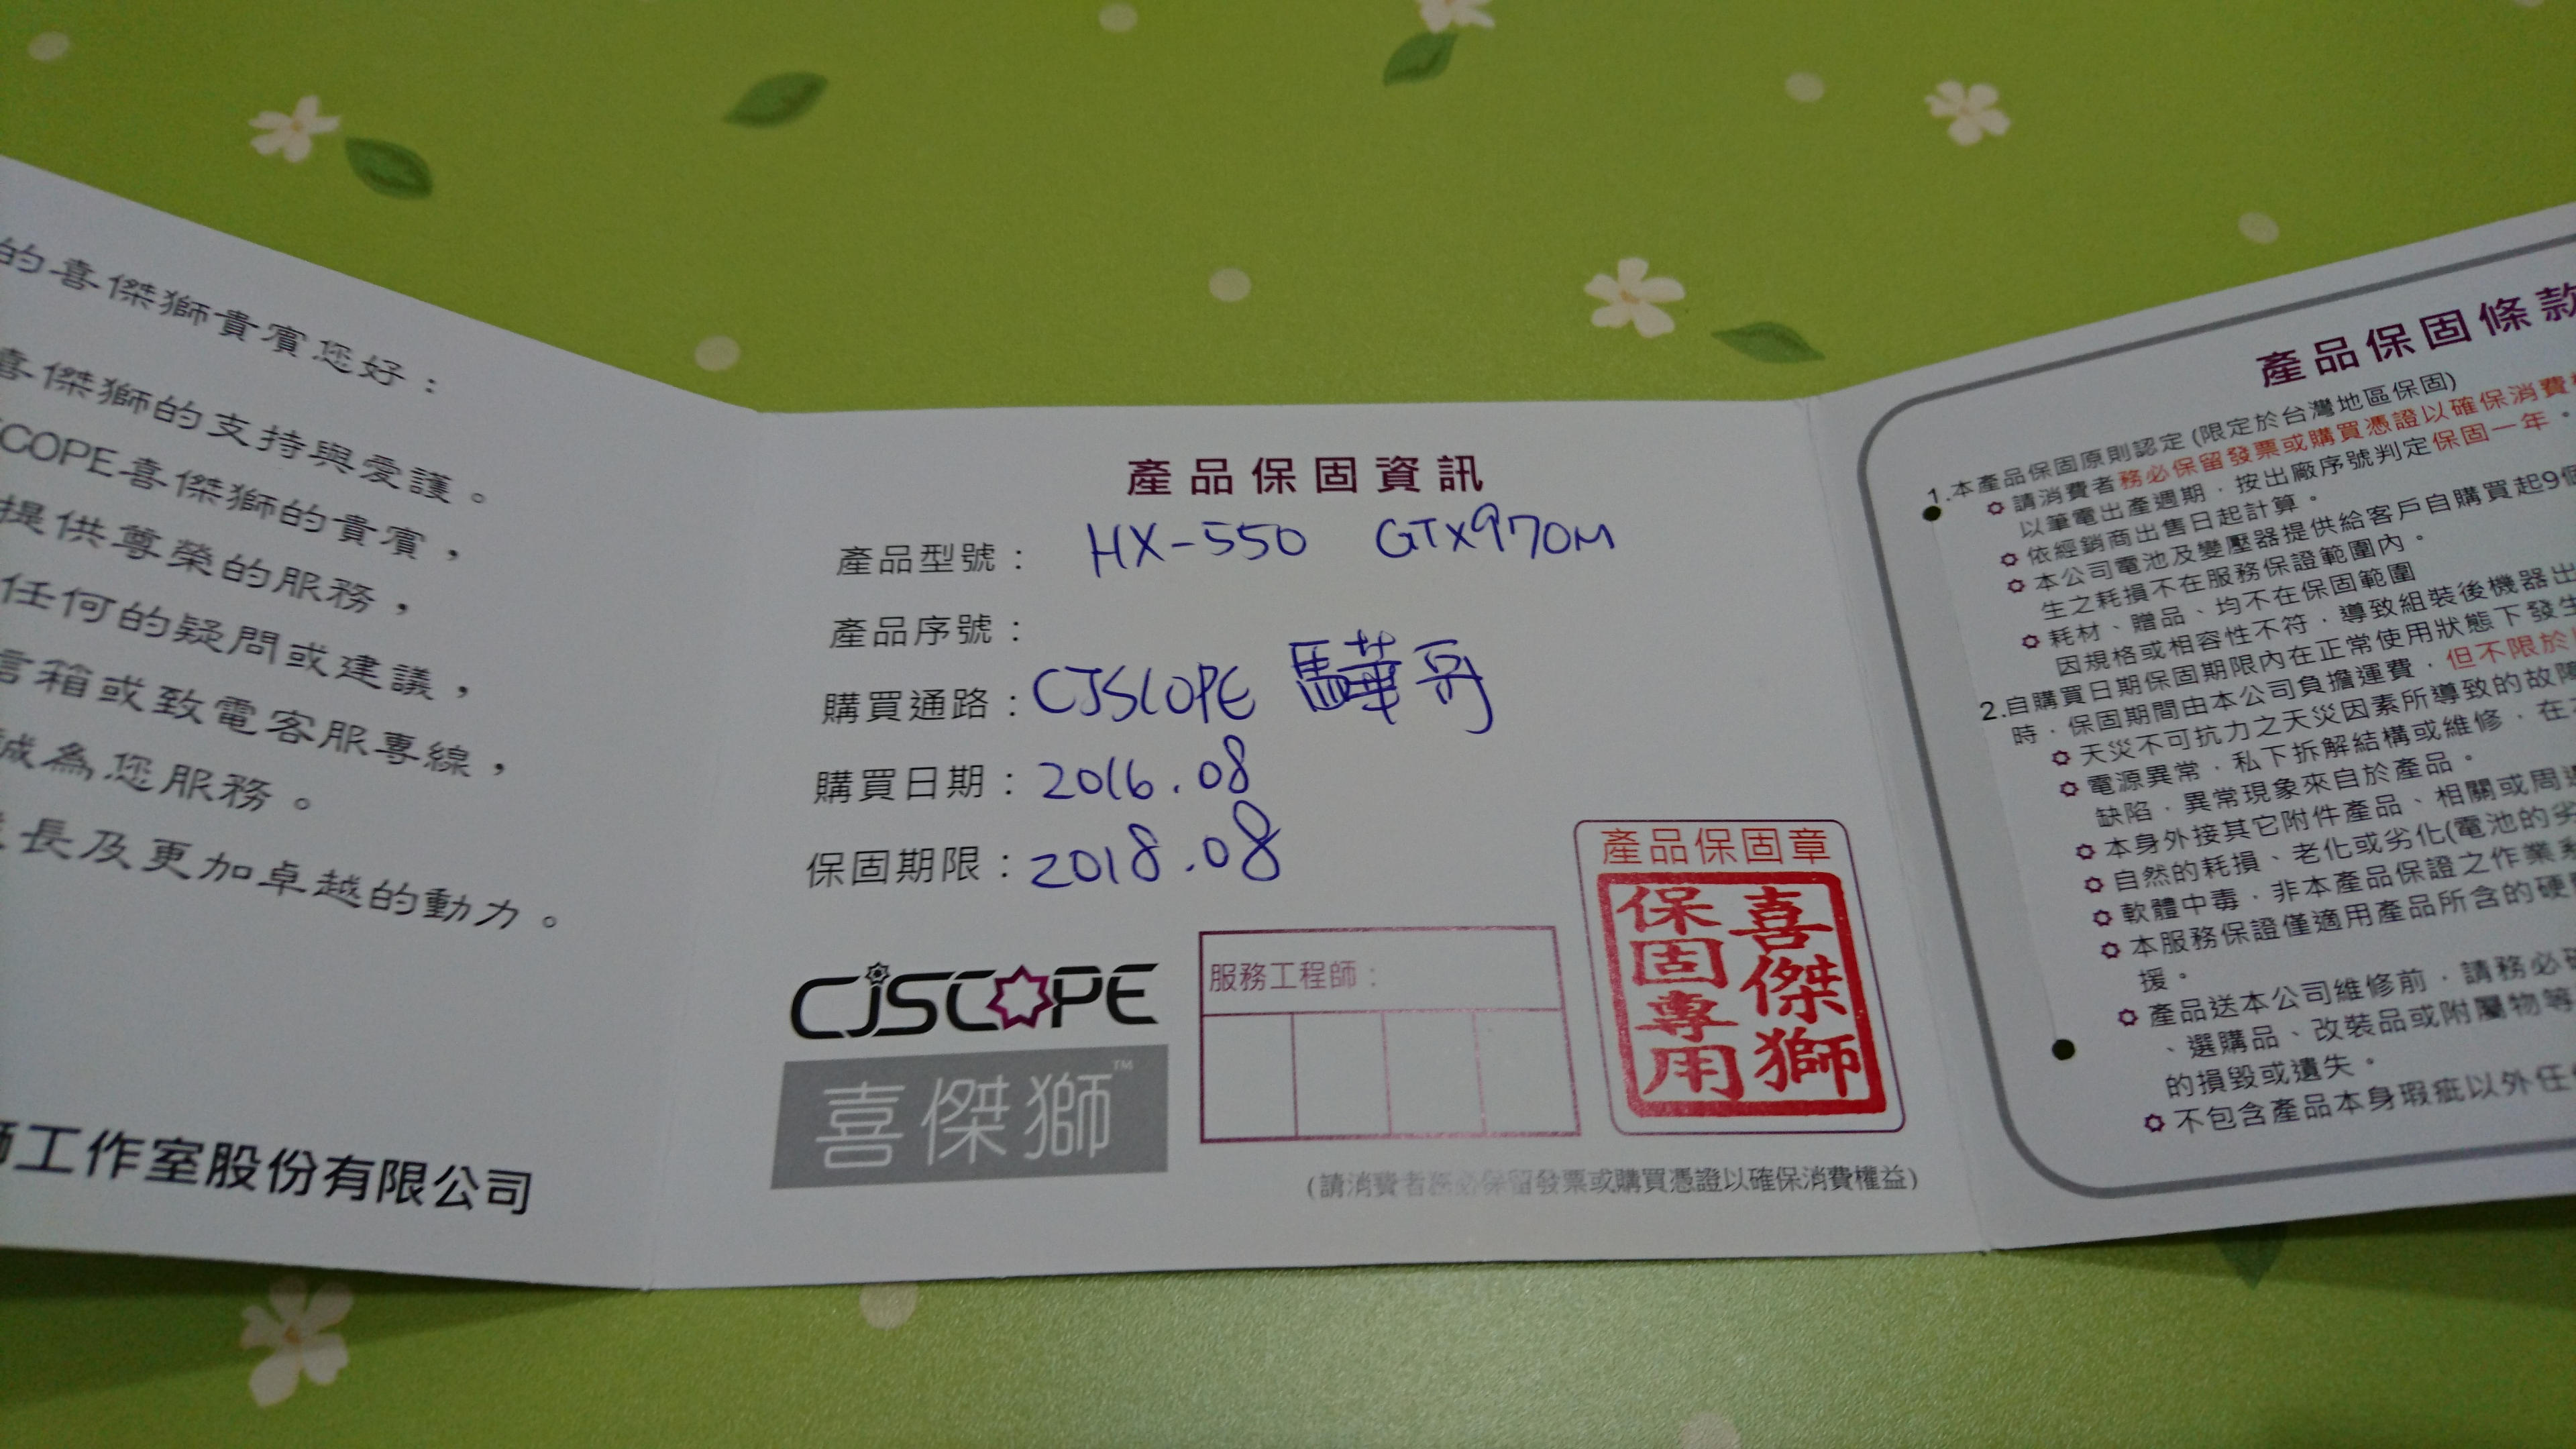 的喜傑獅貴賓您好：
喜傑獅的支持與愛護。
SCOPE喜傑獅的貴賓，
提供尊榮的服務，
任何的疑問或建議，
信箱或致電客服專線，
誠為您服務。
長及更加卓越的動力。
獅工作室股份有限公司
產品保固資訊
產品型號： HX-550 GTX970M
產品序號：
購買通路：CJSCOPE 驊哥
購買日期：2016.08
保固期限：2018.08
CJSCOPE
喜傑獅™
服務工程師：
產品保固章
喜傑獅
保固專用
(請消費者務必保留發票或購買憑證以確保消費權益)
產品保固條款
1.本產品保固原則認定(限定於台灣地區保固)
請消費者務必保留發票或購買憑證以確保消費
以筆電出產週期，按出廠序號判定保固一年。
依經銷商出售日起計算。
本公司電池及變壓器提供給客戶自購買起9個
生之耗損不在服務保證範圍內。
耗材、贈品、均不在保固範圍
因規格或相容性不符，導致組裝後機器出
2.自購買日期保固期限內在正常使用狀態下發生
時，保固期間由本公司負擔運費，但不限於
天災不可抗力之天災因素所導致的故障
電源異常，私下拆解結構或維修，在
缺陷，異常現象來自於產品。
本身外接其它附件產品、相關或周邊
自然的耗損、老化或劣化(電池的劣
軟體中毒，非本產品保證之作業系
本服務保證僅適用產品所含的硬
援。
產品送本公司維修前，請務必
、選購品、改裝品或附屬物等
的損毀或遺失。
不包含產品本身瑕疵以外任